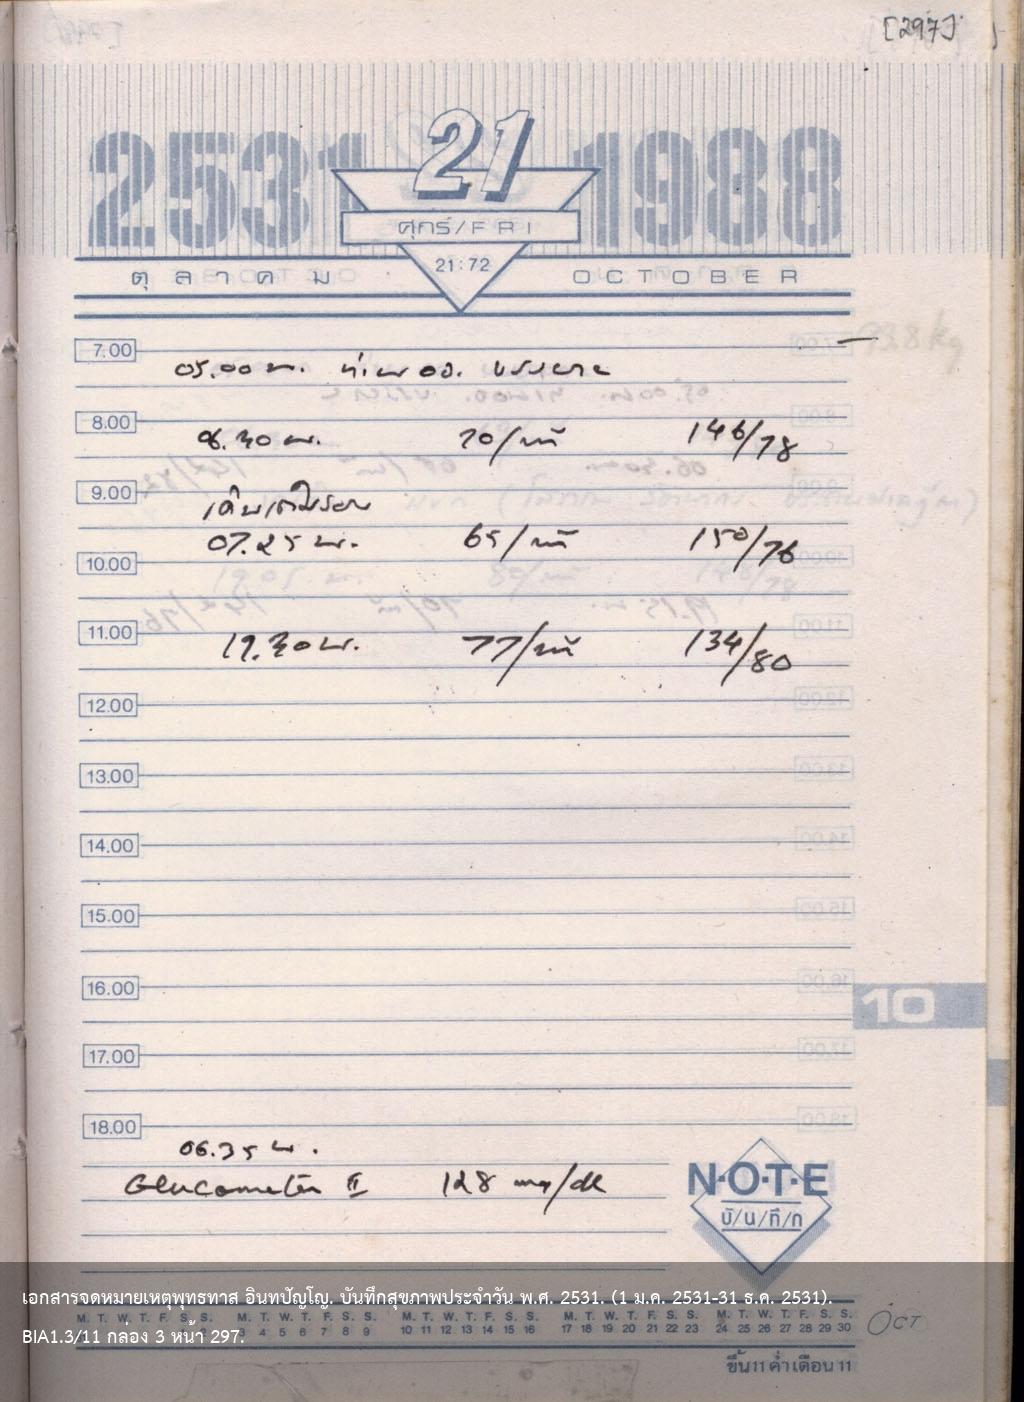 [297]
2531 21 1988
ศุกร์/FRI
21:72
ตุลาคม OCTOBER
7.00
05.00 น. ท่านอจ. บรรยาย
8.00
06.30 น. 70/นาที 146/78
9.00
07.25 น. 65/นาที 150/76
10.00
11.00
19.30 น. 77/นาที 134/80
12.00
13.00
14.00
15.00
16.00
10
17.00
18.00
06.35 น.
Glucometer II 128 mg/dl
N·O·T·E
บั/น/ทึ/ก
เอกสารจดหมายเหตุพุทธทาส อินทปัญโญ. บันทึกสุขภาพประจำวัน พ.ศ. 2531. (1 ม.ค. 2531-31 ธ.ค. 2531).
M. T. W. T. F. S. S. M. T. W. T. F. S. S. M. T. W. T. F. S. S. M. T. W. T. F. S. S. M. T. W. T. F. S. S.
3 4 5 6 7 8 9 10 11 12 13 14 15 16 17 18 19 20 21 22 23 24 25 26 27 28 29 30
OCT
BIA1.3/11 กล่อง 3 หน้า 297.
ขึ้น 11 ค่ำ เดือน 11